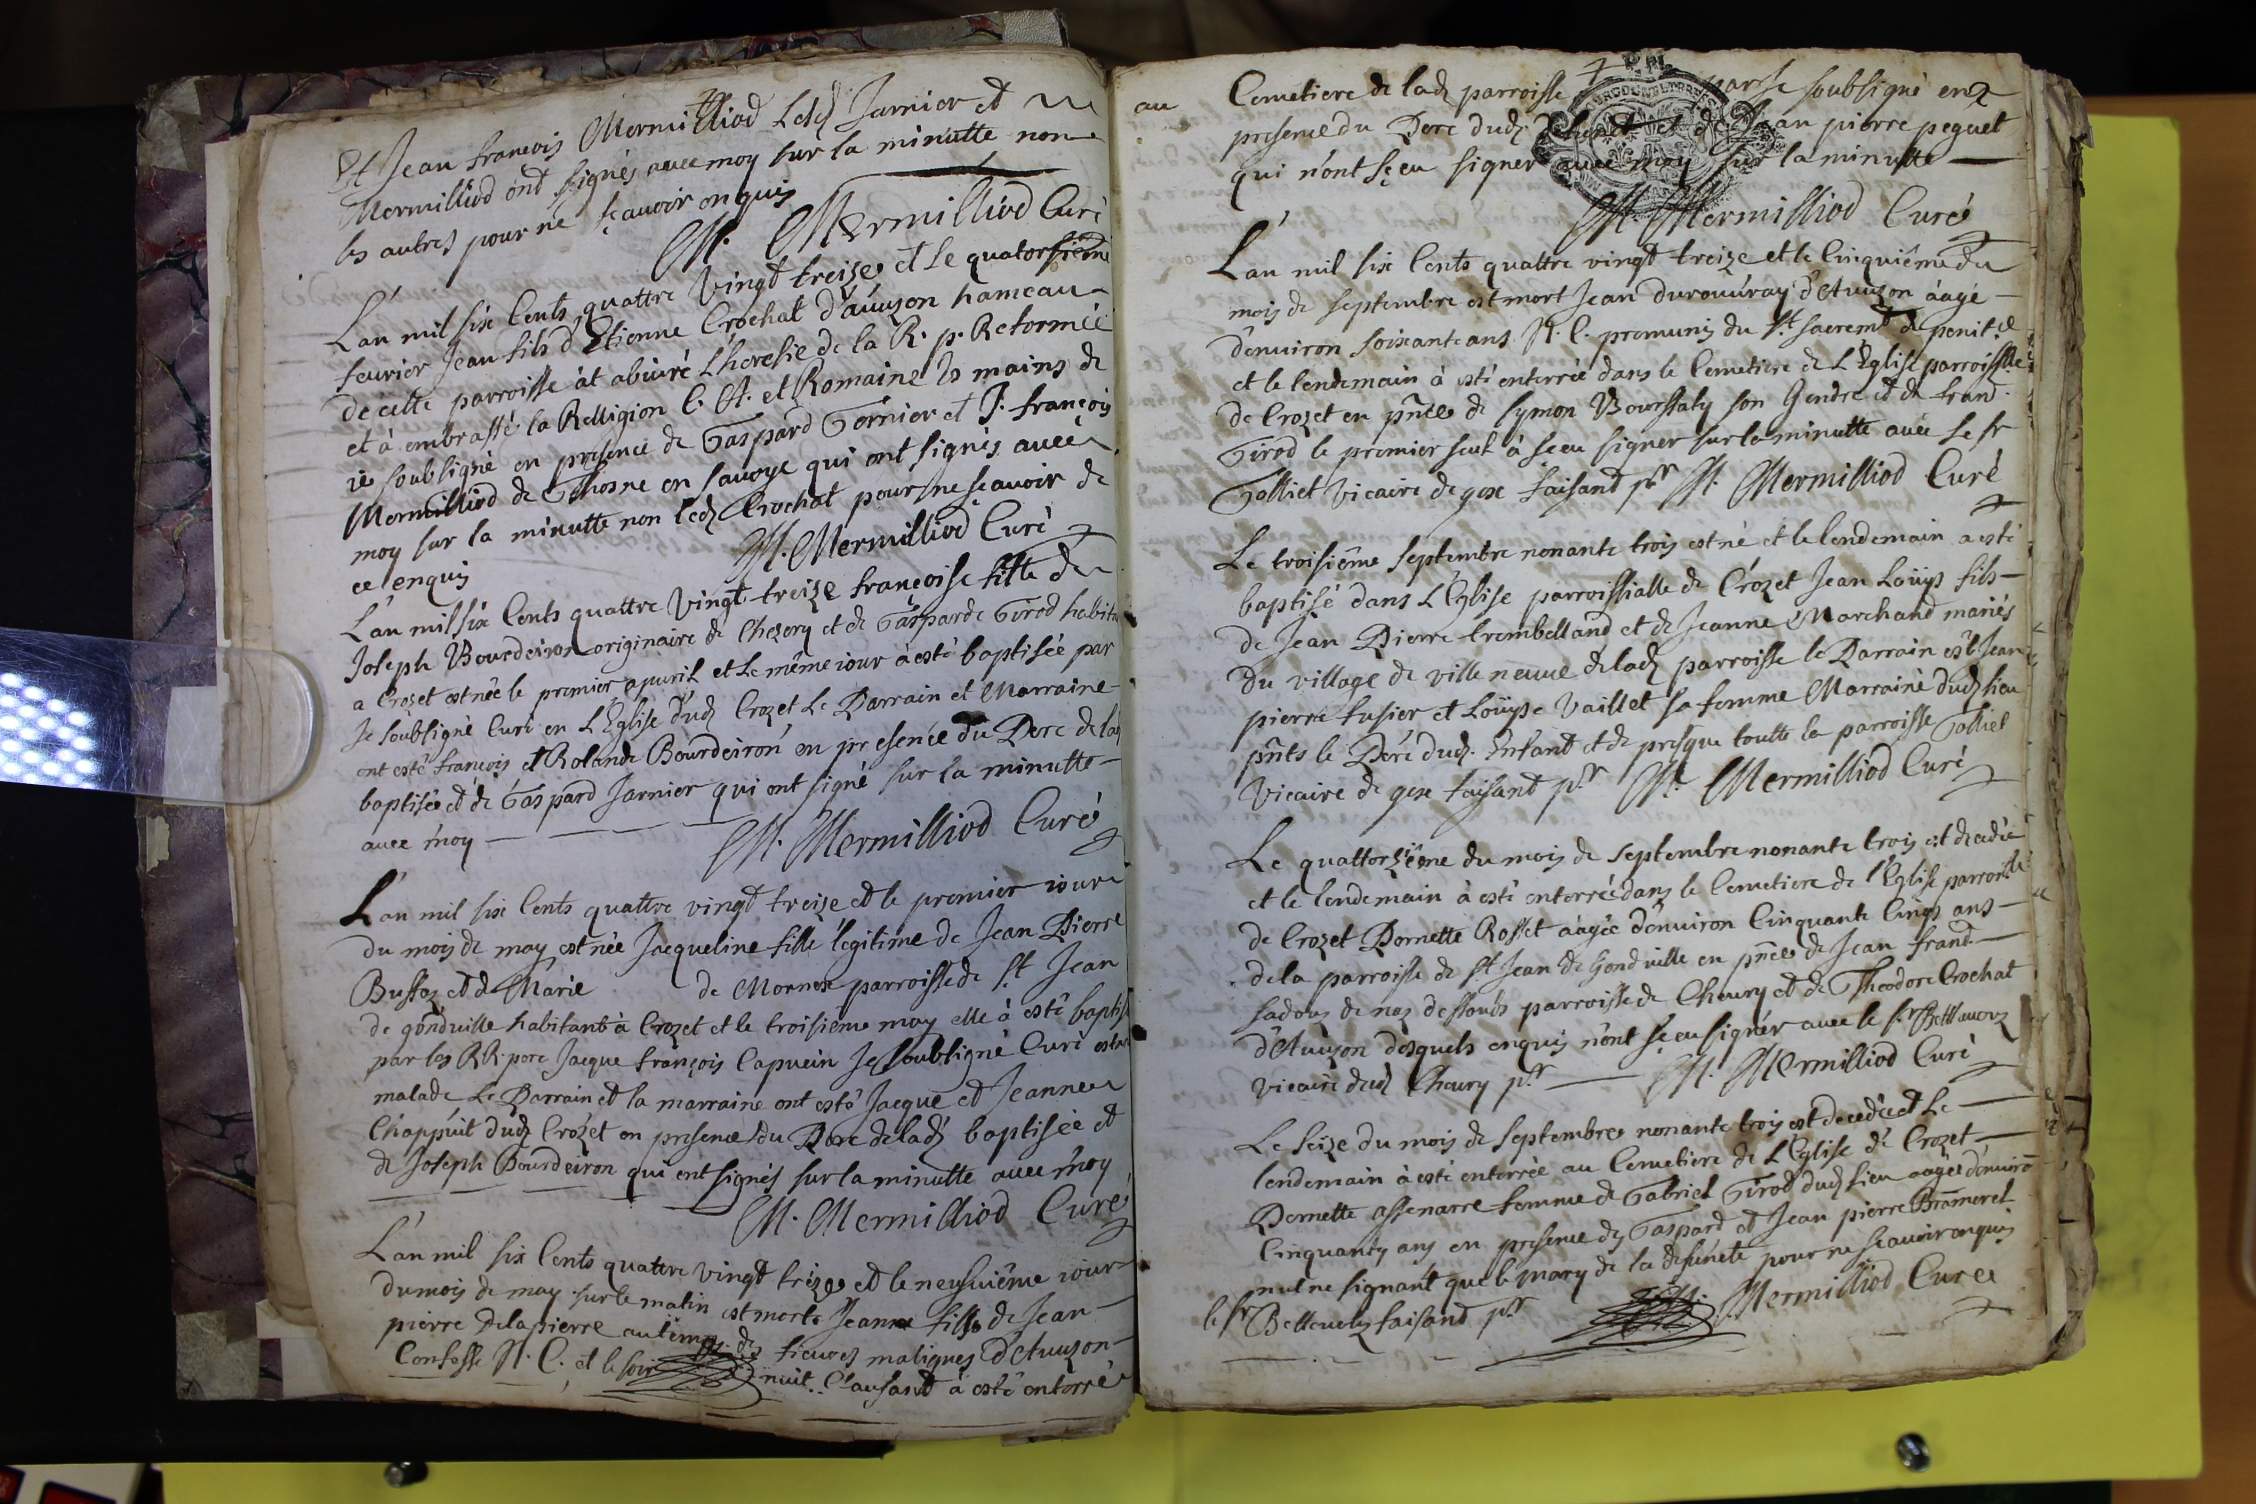 Et Jean françois Mermilliod Lesd Jarnier et
Mermilliod ont signés avec moy sur la minutte non
les autres pour ne sçavoir enquis
M. Mermilliod Curé
L'an mil six Cents quattre vingt treize et le quatorsieme
feurier Jean fils d'Etienne Crochat d'auuzon hameau
de cette parroisse ât abiuré L'heresie de la R. p. Reformée
et â embrassé la Relligion C. A. et Romaine es mains de
ie soubsigné en presence de Gaspard Gornier et J. françois
Mermilliod de Thosne en sauoye qui ont signés avec
moy sur la minutte non led Crochat pour ne sçavoir de
ce enquis
M. Mermilliod Curé
L'an mil six Cents quattre vingt treize françoise fille de
Joseph Bourdeiron originaire de Chezery et de Gasparde Girod habita
a Crozet est née le premier apuril et le même iour à esté baptisée par
Je soubsigné Curé en L'Eglise dud Crozet Le Parrain et Marraine
ont esté françois et Rolande Bourdeiron en presence du Pere de lad
baptisée et de Gaspard Jarnier qui ont signé sur la minutte
avec moy
M. Mermilliod Curé
L'an mil six Cents quattre vingt treize et le premier iour
du mois de may est née Jacqueline fille legitime de Jean Pierre
Bussoz et de Marie de Mornex parroisse de St Jean
de gondville habitant à Crozet et le troisieme may elle à esté baptis
par les RR. pere Jacque françois Capucin Je soubsigné Curé estan
malade Le Parrain et la marraine ont esté Jacque et Jeanne
Chappuit dud Crozet en presence du Pere de lad baptisée et
de Joseph Bourdeiron qui ont signés sur la minutte avec moy
M. Mermilliod Curé
L'an mil six Cents quattre vingt treize et le neufuiême iour
du mois de may sur le matin est morte Jeanne fille de Jean
pierre delapierre au temps des fieures malignes d'Auuzon
Confesse N. C. et le soir nuit Clausant à esté enterré
au Cemetiere de lad parroisse par Je soubsigné en
presence du Pere dud defunct et de Jean pierre peguet
qui n'ont sçeu signer avec moy sur la minutte
M. Mermilliod Curé
L'an mil six Cents quattre vingt treize et le Cinquiême du
mois de septembre est mort Jean durouuray d'Auuzon âagé
d'enuiron soixante ans N. C. premunis du St sacremt de penit.ce
et le lendemain à esté enterré dans le Cemetiere de L'Eglise parroissile
de Crozet en pnce de symon Bourssaty son Gendre et de fran.
Girod le premier seul à sceu signer sur la minutte avec le sr
Golliet vicaire de gex faisant pr M. Mermilliod Curé
Le troisiême septembre nonante trois est né et le lendemain a esté
baptisé dans L'Eglise parroissialle de Crozet Jean Loüys fils
de Jean Pierre trembelland et de Jeanne Marchand mariés
du village de ville neuue de lad parroisse le Parrain est Jean
pierre fusier et Loüyse Vaillet sa femme Marraine dud lieu
pnts le Pere dud. Enfant et de presque toutte la parroisse Golliet
Vicaire de gex faisant pr M. Mermilliod Curé
Le quattorziême du mois de septembre nonante trois est decedée
et le lendemain à esté enterrée dans le Cemetiere de l'Eglise parroisle
de Crozet Pernette Rosset aagée d'enuiron Cinquante Cinqs ans
de la parroisse de St Jean de Gondville en pnce de Jean frans
sadouz de naz dessoubs parroisse de Cheury et de Theodore Crochat
d'Auuzon desquels enquis n'ont sçeu signer avec le sr
vicaire dud Cheury pr M. Mermilliod Curé
Le seize du mois de septembre nonante trois est decedée et Le
lendemain à esté enterrée au Cemetiere de L'Eglise de Crozet
Pernette assenarre femme de Gabriel Girod dud lieu aagée d'enuirō
Cinquante ans en presence des Gaspard et Jean pierre Bramerel
nul ne signant que le mary de la defuncte pour ne sçavoir enquis
le sr faisand pr M. Mermilliod Curé